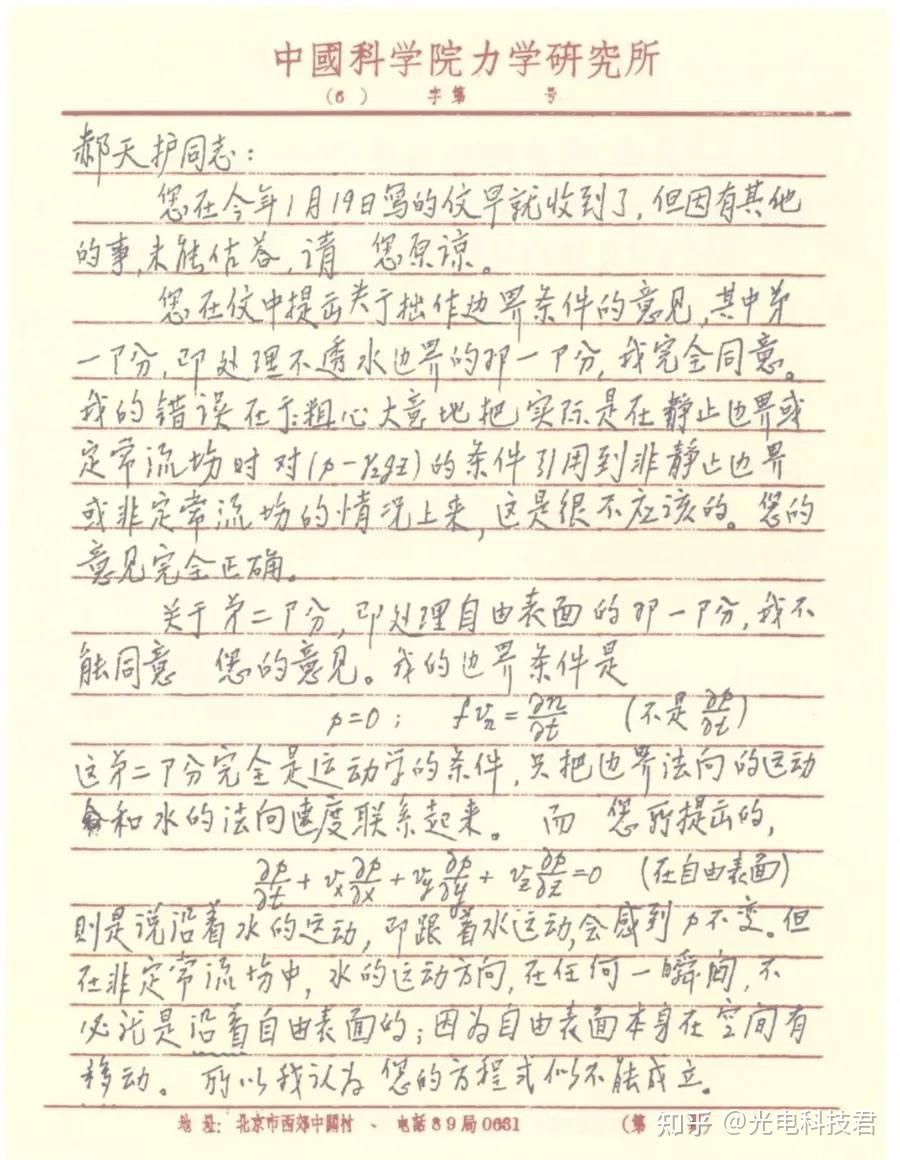 中國科学院力学研究所
(6) 字第 号
郝天护同志：
您在今年1月19日写的信早就收到了，但因有其他
的事，未能估答，请 您原谅。
您在信中提出关于拙作边界条件的意见，其中第
一部分，即处理不透水边界的那一部分，我完全同意。
我的错误在于：粗心大意地把实际是在静止边界或
定常流场时对(p-γ₂gz)的条件引用到非静止边界
或非定常流场的情况上来，这是很不应该的。您的
意见完全正确。
关于第二部分，即处理自由表面的那一部分，我不
能同意 您的意见。我的边界条件是
p=0； fvₙ=∂n/∂t （不是∂p/∂t）
这第二部分完全是运动学的条件，只把边界法向的运动
和水的法向速度联系起来。而 您所提出的，
∂p/∂t + vₓ∂p/∂x + v_y∂p/∂y + v_z∂p/∂z = 0 （在自由表面）
则是说沿着水的运动，即跟着水运动，会感到p不变。但
在非定常流场中，水的运动方向，在任何一瞬间，不
必就是沿着自由表面的；因为自由表面本身在空间有
移动。所以我认为 您的方程式似不能成立。
地址：北京市西郊中關村 、 电話89局0631 （第
知乎 @光电科技君